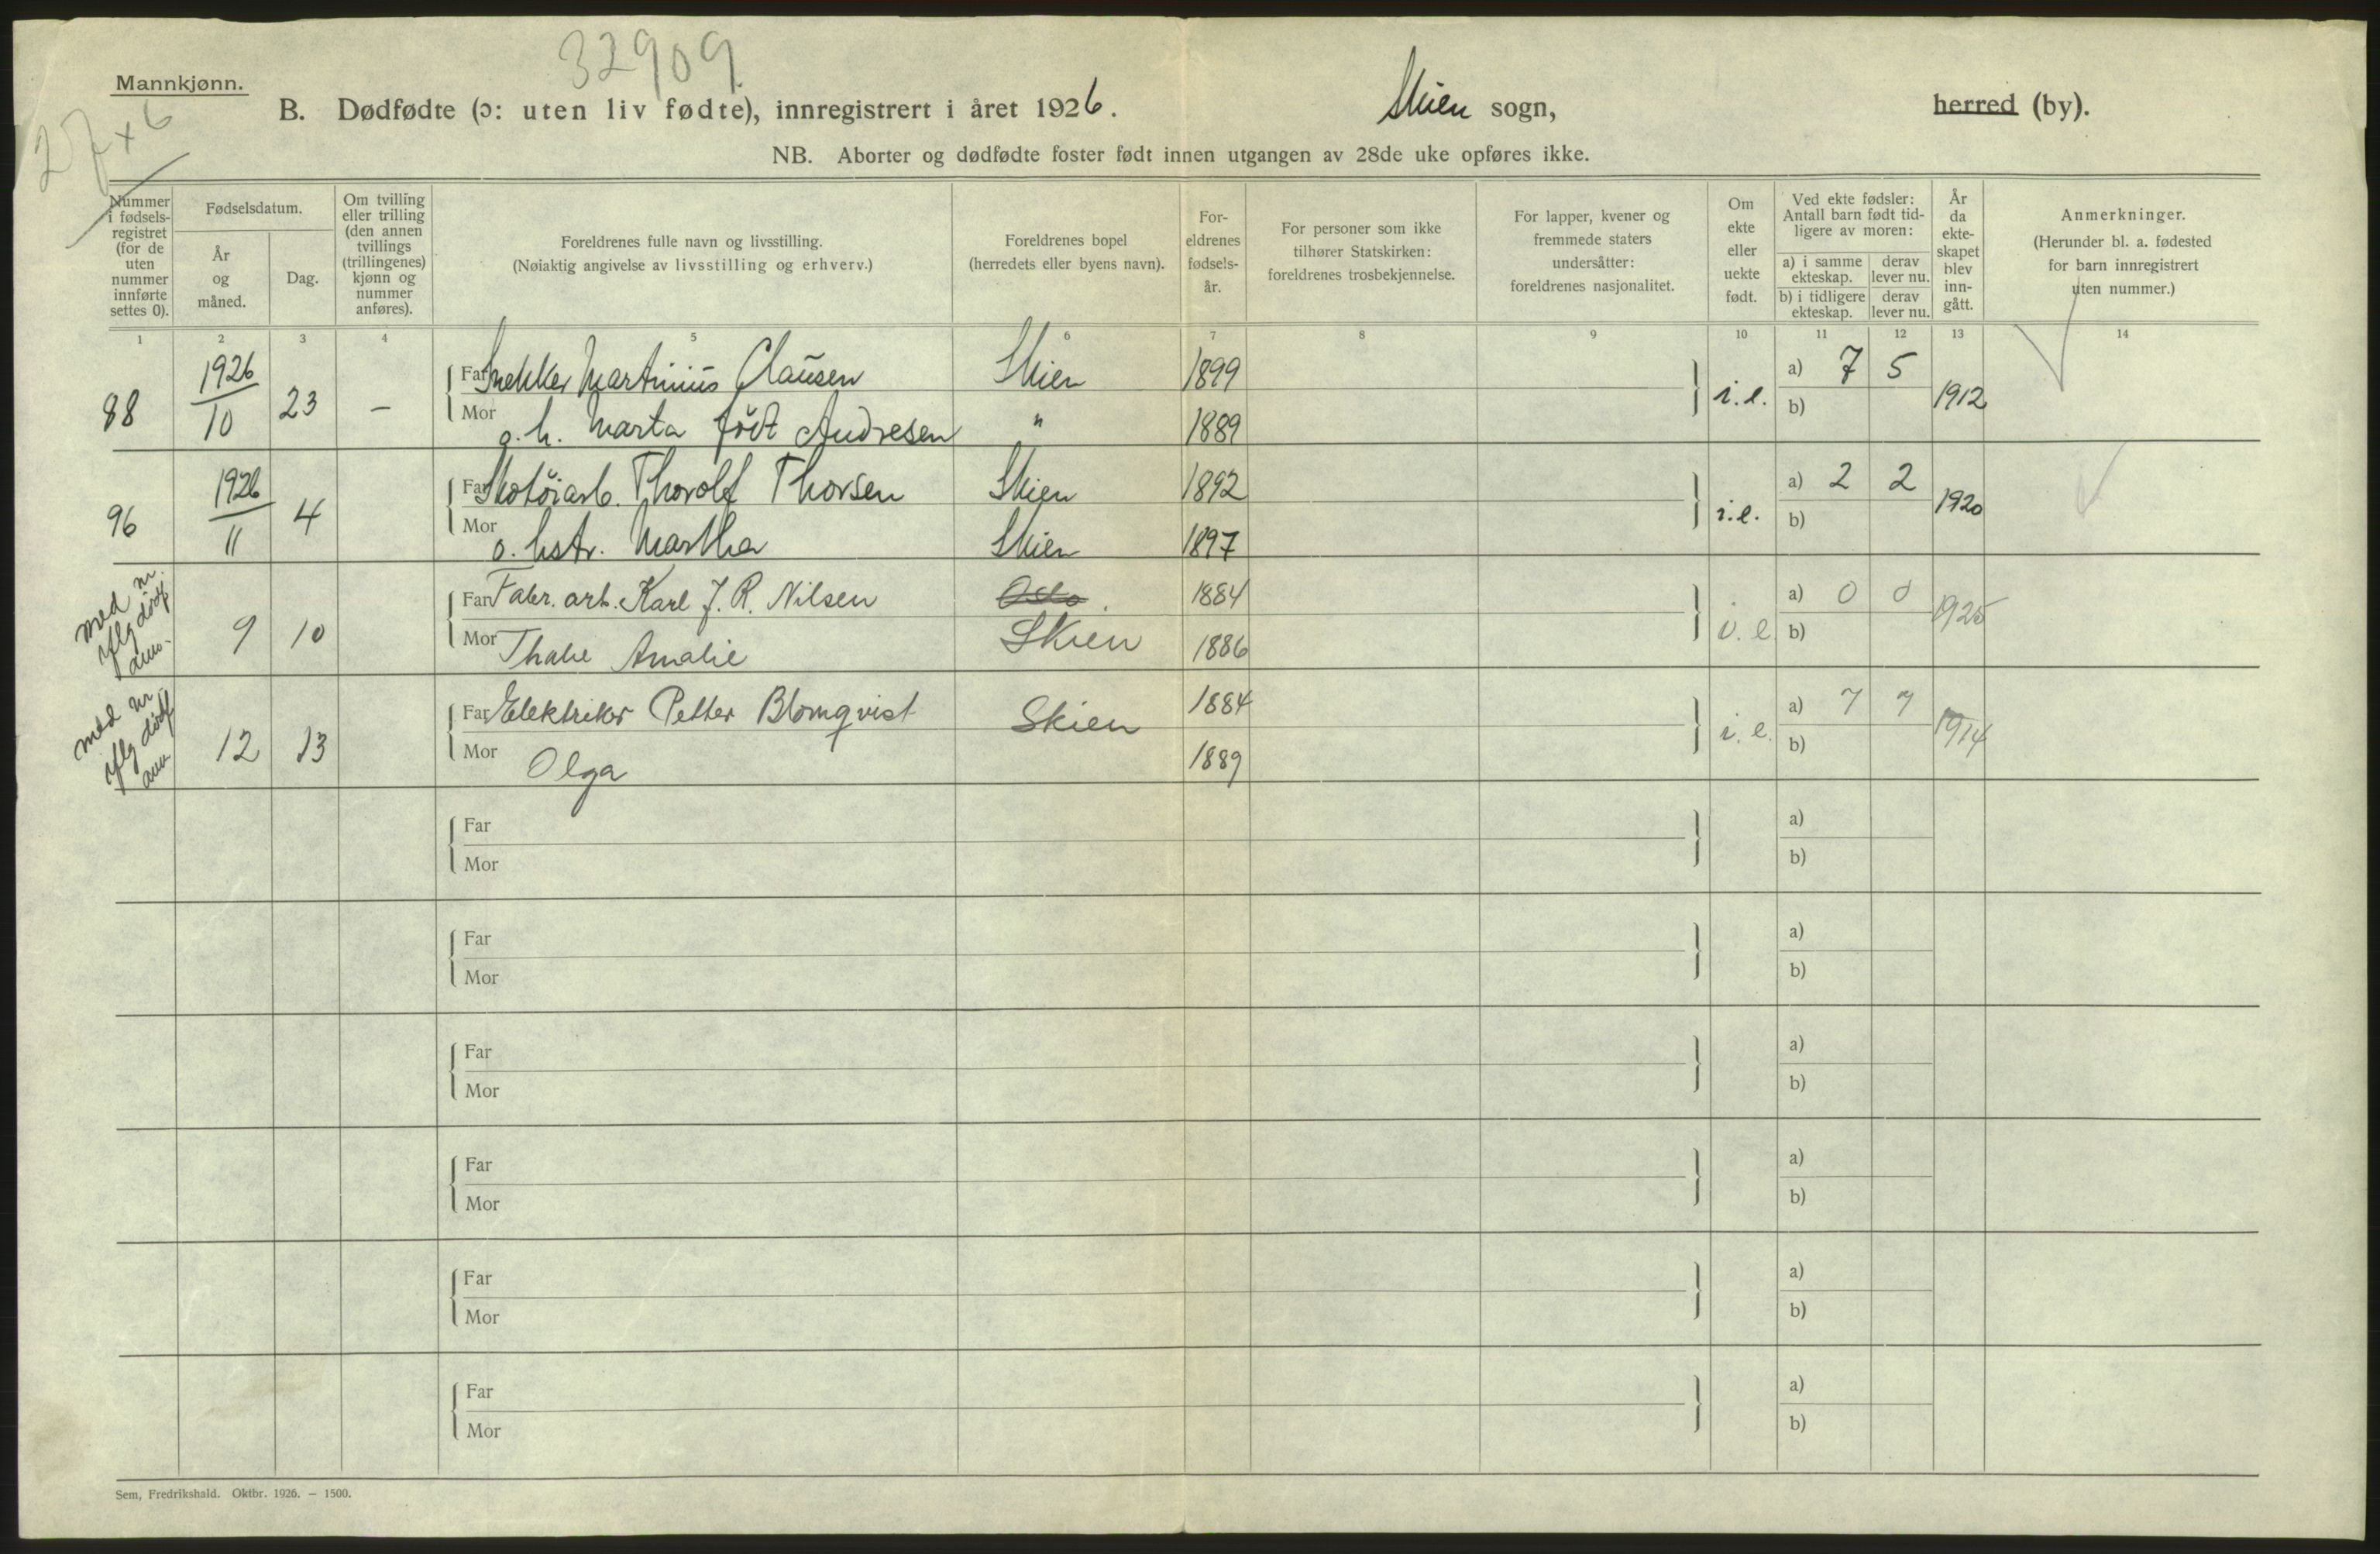 32909.
Mannkjønn.
27 + 6
B. Dødfødte (ɔ: uten liv fødte), innregistrert i året 1926. Skien sogn, herred (by).
NB. Aborter og dødfødte foster født innen utgangen av 28de uke opføres ikke.
Nummer i fødsels- registret (for de uten nummer innførte settes 0).
Fødselsdatum.
År og måned.
Dag.
Om tvilling eller trilling (den annen tvillings (trillingenes) kjønn og nummer anføres).
Foreldrenes fulle navn og livsstilling.
(Nøiaktig angivelse av livsstilling og erhverv.)
Foreldrenes bopel
(herredets eller byens navn).
For- eldrenes fødsels- år.
For personer som ikke tilhører Statskirken: foreldrenes trosbekjennelse.
For lapper, kvener og fremmede staters undersåtter: foreldrenes nasjonalitet.
Om ekte eller uekte født.
Ved ekte fødsler: Antall barn født tid- ligere av moren:
a) i samme ekteskap.
derav lever nu.
b) i tidligere ekteskap.
derav lever nu.
År da ekte- skapet blev inn- gått.
Anmerkninger.
(Herunder bl. a. fødested for barn innregistrert uten nummer.)
1 2 3 4 5 6 7 8 9 10 11 12 13 14
88 1926/10 23 – Far Snekker Martinius Clausen Skien 1899 i.e. a) 7 5 1912
Mor o. h. Marta født Andresen " 1889 b)
96 1926/11 4 Far Skotöiarb. Thorolf Thorsen Skien 1892 i.e. a) 2 2 1920
Mor o. hstr. Martha Skien 1897 b)
med nr. iflg dödf anm. 9 10 Far Fabr. arb. Karl J. R. Nilsen Oslo. 1884 i. e a) 0 0 1925
Mor Thalie Amalie Skien 1886 b)
med nr iflg dödf anm 12 13 Far Elektriker Petter Blomqvist Skien 1884 i. e. a) 7 7 1914
Mor Olga 1889 b)
Far a)
Mor b)
Far a)
Mor b)
Far a)
Mor b)
Far a)
Mor b)
Far a)
Mor b)
Far a)
Mor b)
Sem, Fredrikshald. Oktbr. 1926. – 1500.